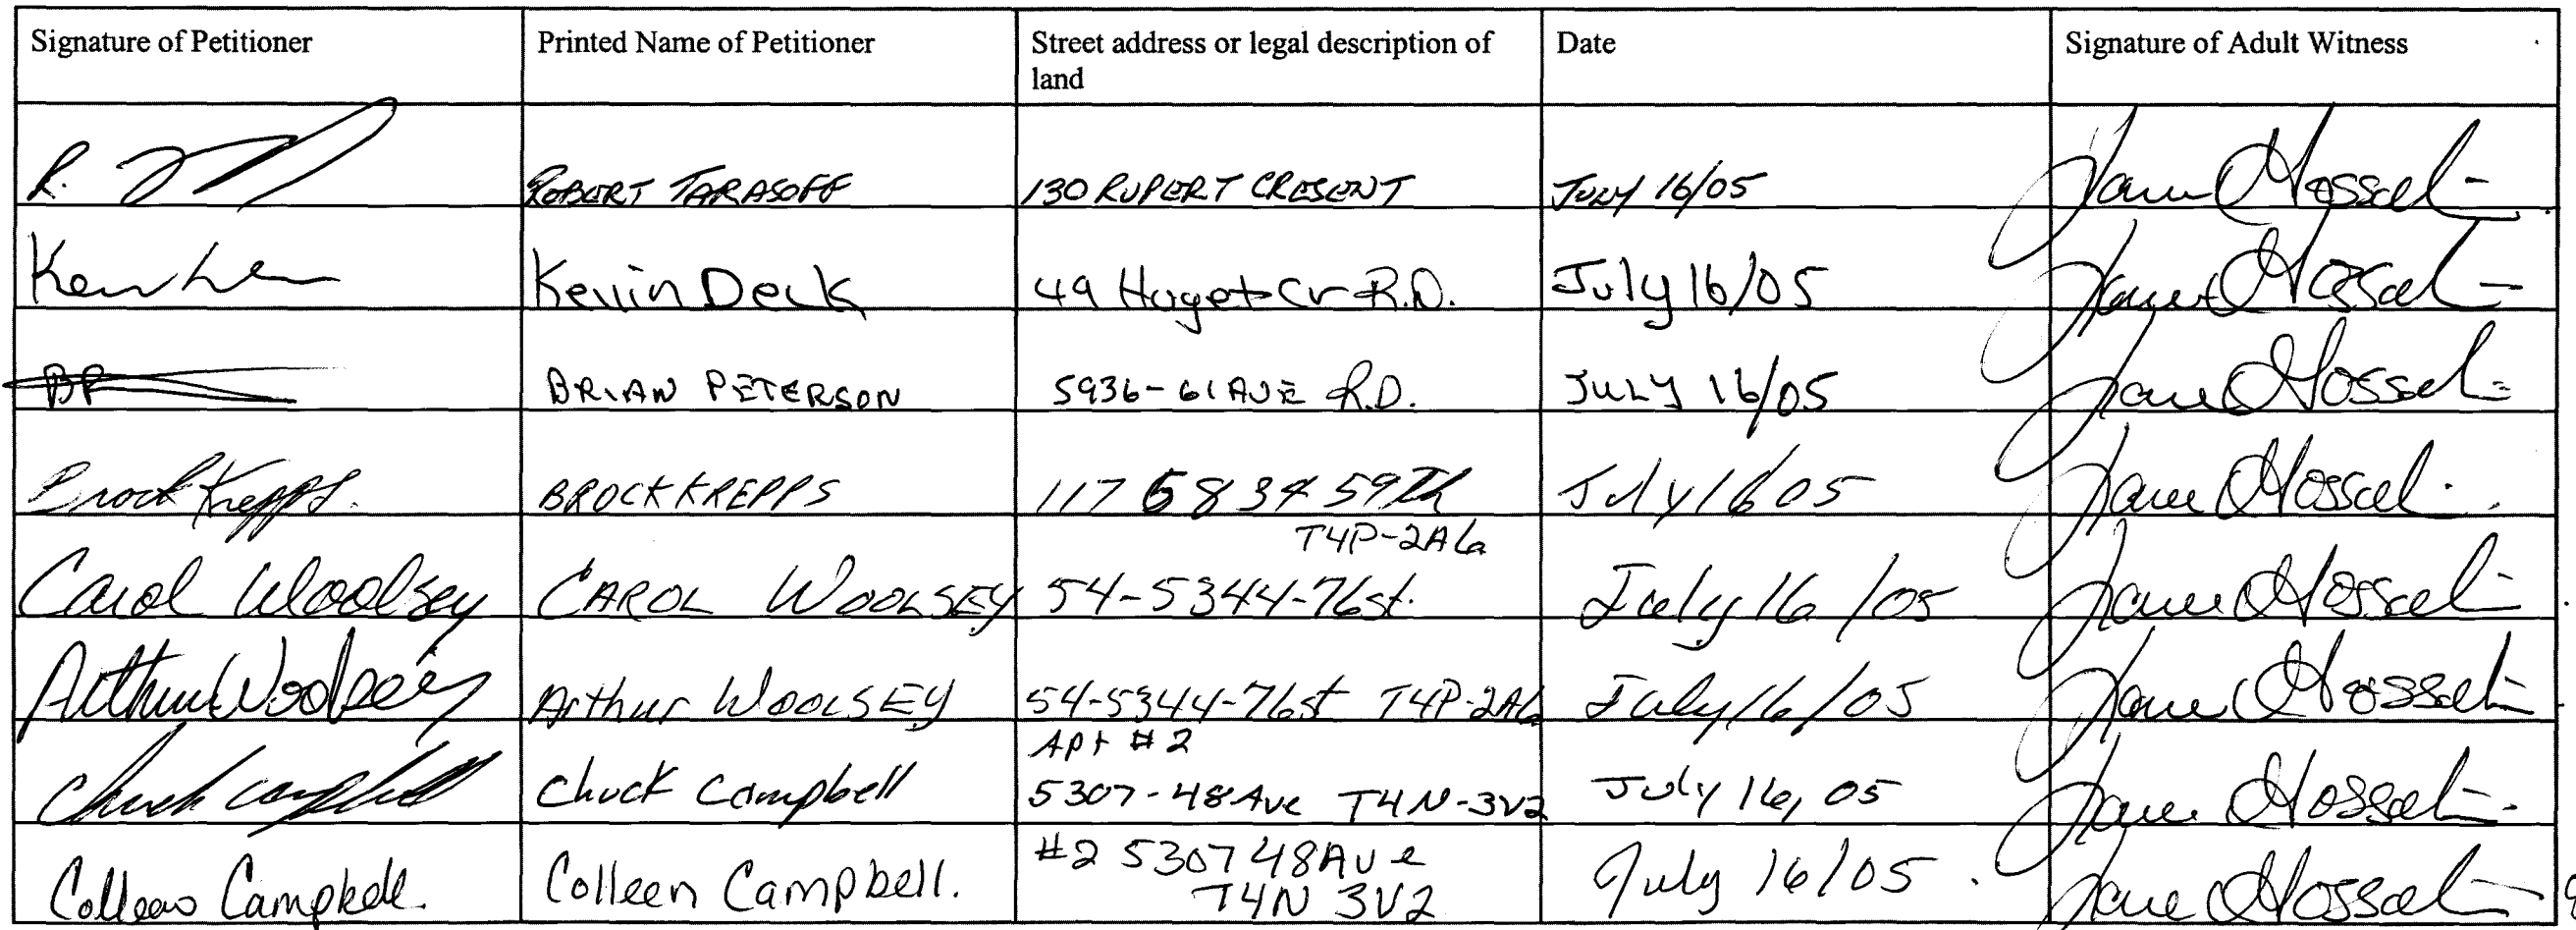 Signature of Petitioner
Printed Name of Petitioner
Street address or legal description of
land
Date
Signature of Adult Witness
R.
ROBERT TARASOFF
130 RUPERT CRESENT
JULY 16/05
Kevin Deck
49 Huget Cr R.D.
July 16/05
BP
BRIAN PETERSON
5936-61 AVE R.D.
JULY 16/05
Brock Krepps.
BROCK KREPPS
117 5834 59Th
July 16 05
T4P-2A6
Carol Woolsey
CAROL WOOLSEY
54-5344-76st.
July 16/05
Arthur Woolsey
Arthur WOOLSEY
54-5344-76st T4P-2A6
July 16/05
Apt #2
Chuck Campbell
Chuck Campbell
5307-48 Ave T4N-3V2
July 16, 05
#2 5307 48 Ave
Colleen Campbell.
Colleen Campbell.
T4N 3V2
July 16/05.